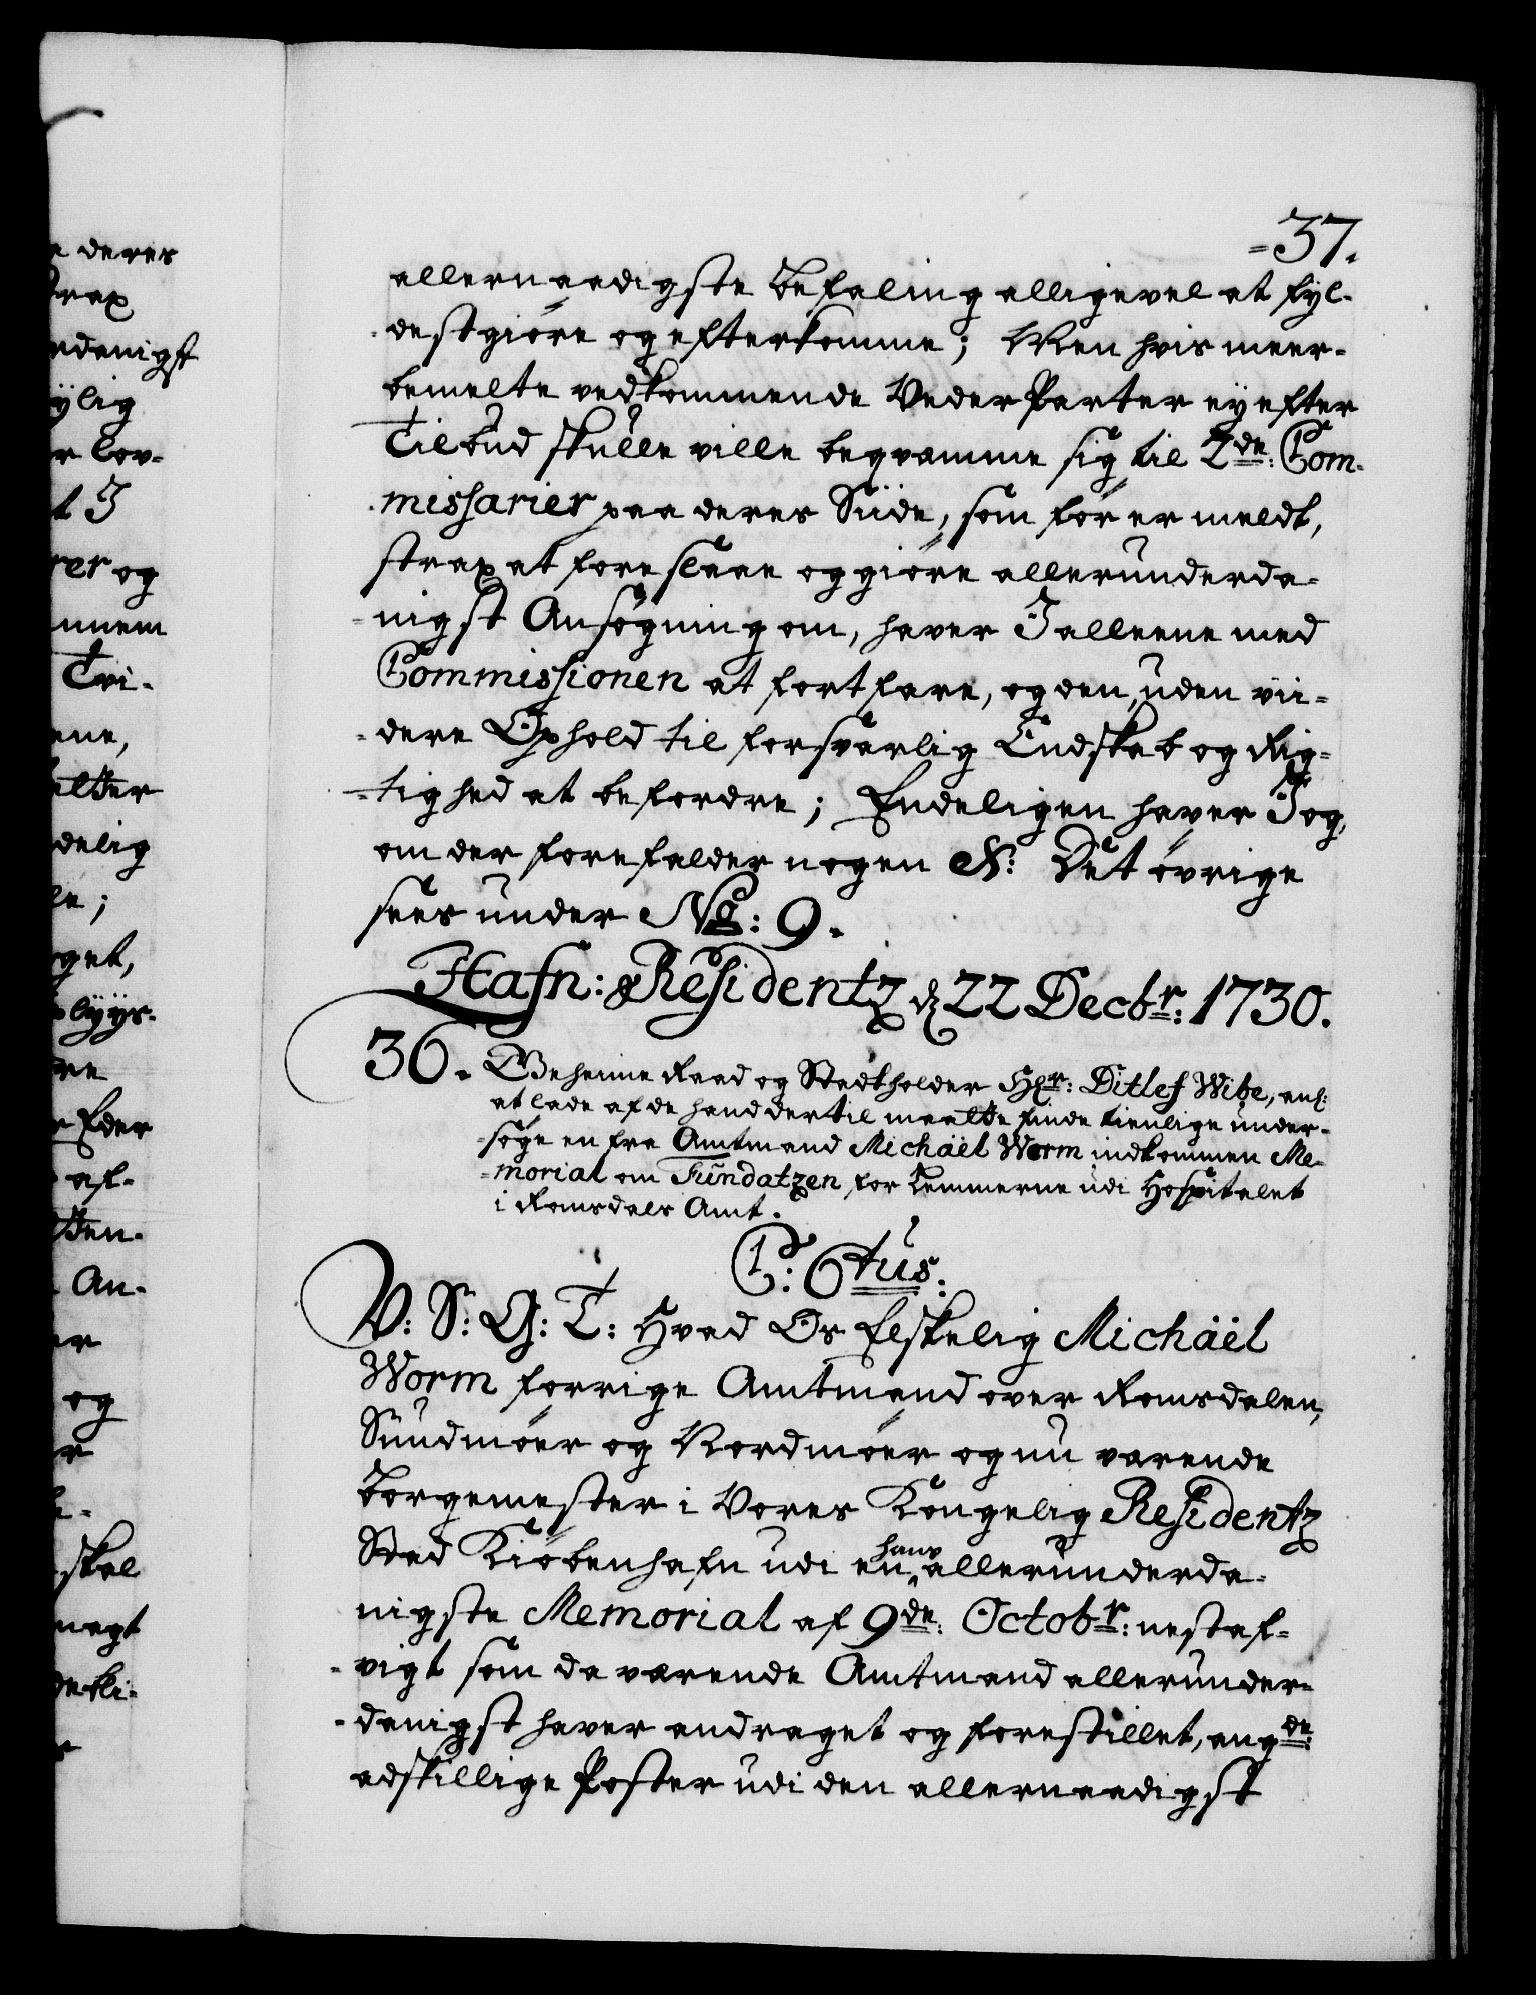 =37.
allernaadigste Befaling alligevel at fyl-
destgiøre og efterkomme; Men hvis meer-
bemelte vedkommende VederParter ey efter
Tilbud skulle ville beqvamme sig til 2de: Com-
missarier paa deres Siide, som før er meldt,
strax at foreslaae og giøre allerunderda-
nigst Ansøgning om, haver I alleene med
Commissionen at fortfare, og den, uden vii-
dere Ophold til forsvarlig Endskab og Rig-
tighed at befordre; Endeligen haver I og,
om der forefalder nogen &: Det øvrige
sees under No: 9.
Hafn: Residentz d 22 Decbr: 1730.
36. Geheime Raad og Stadtholder Hr: Ditlef Wibe, anl:
at lade af de hand dertil maatte finde tienlige under-
søge en fra Amtmand Michäel Worm indkommen Me-
morial om Fundatzen for Lemmerne udi Hospitalet
i Romsdals Amt.
C: 6tus:
V: S: G: T: Hvad Os Elskelig Michäel
Worm forrige Amtmand over Romsdalen,
Sundmøer og Nordmøer og nu værende
Borgemester i Vores Kongelig Residentz
Stad Kiøbenhafn udi en hans allerunderda-
nigste Memorial af 9de: Octobr: nestaf-
vigt som da værende Amtmand allerunder-
danigst haver andraget og forestillet, angde:
adskillige Poster udi den allernaadigst